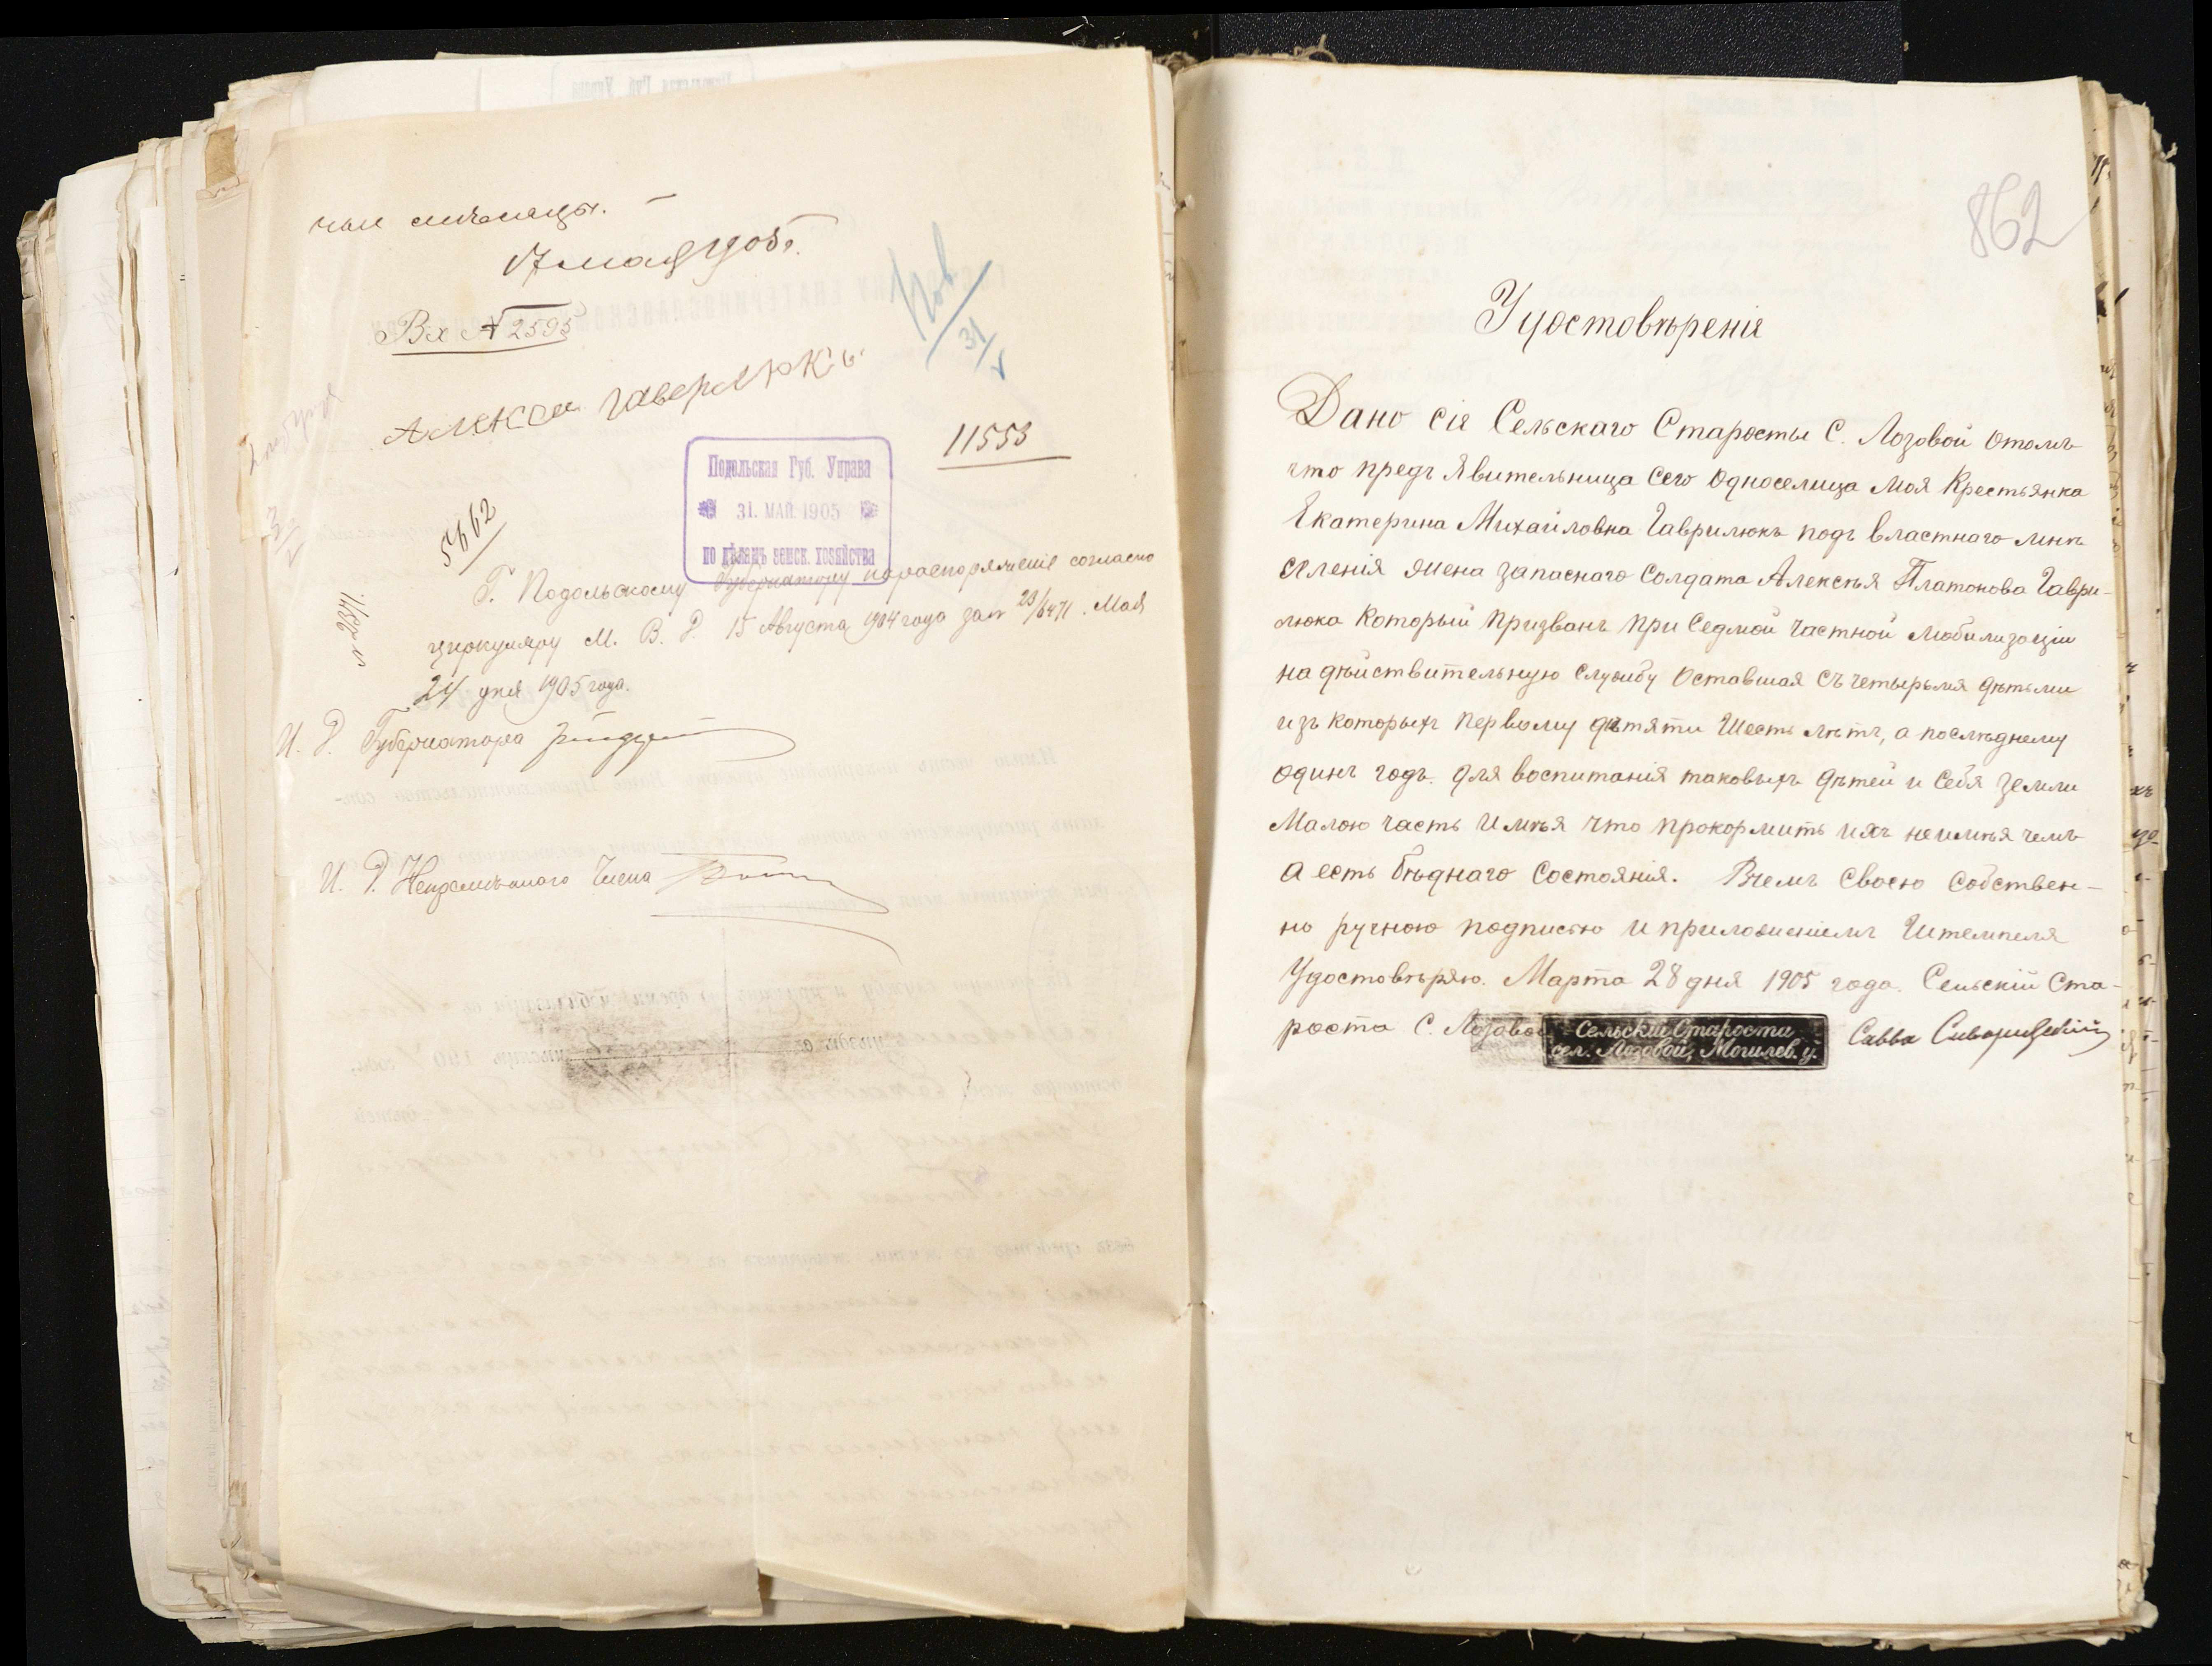 мѣсяцы.
17 мая 1905 г.
Вх № 2595
31/V
Алексей Гаверлюкъ
11553
Подольская Губ. Управа
31. МАЙ. 1905
по дѣламъ земск. хозяйства
5662
Г. Подольскому Губернатору на распоряженіе согласно
циркуляру М. В. Д. 15 Августа 1904 года за № 23/6471. Мая
24 дня 1905 года.
И. Д. Губернатора
И. Д. Непремѣннаго Члена
862
Удостовѣреніе
Дано сіе Сельскаго Старосты С. Лозовой отомъ
что предъ Явительница сего односелица моя Крестьянка
Екатерина Михайловна Гаврилюкъ подъ властнаго мнѣ
селенія жена запаснаго солдата Алексѣя Платонова Гаври-
люка который призванъ при седмой частной мобилизаціи
на дѣйствительную службу оставшая съ четырьмя дѣтьми
изъ которыхъ первому дѣтяти шесть лѣтъ, а послѣднему
одинъ годъ. для воспитанія таковыхъ дѣтей и себя земли
малою часть имѣя что прокормить ихъ неимѣя чемъ
а есть бѣднаго состоянія. Вчемъ своею собствен-
но ручною подписью и приложеніемъ Штемпеля
Удостовѣряю. Марта 28 дня 1905 года. Сельскій Ста-
роста С. Лозовой
Сельскій Староста
сел. Лозовой, Могилев. у.
Савва